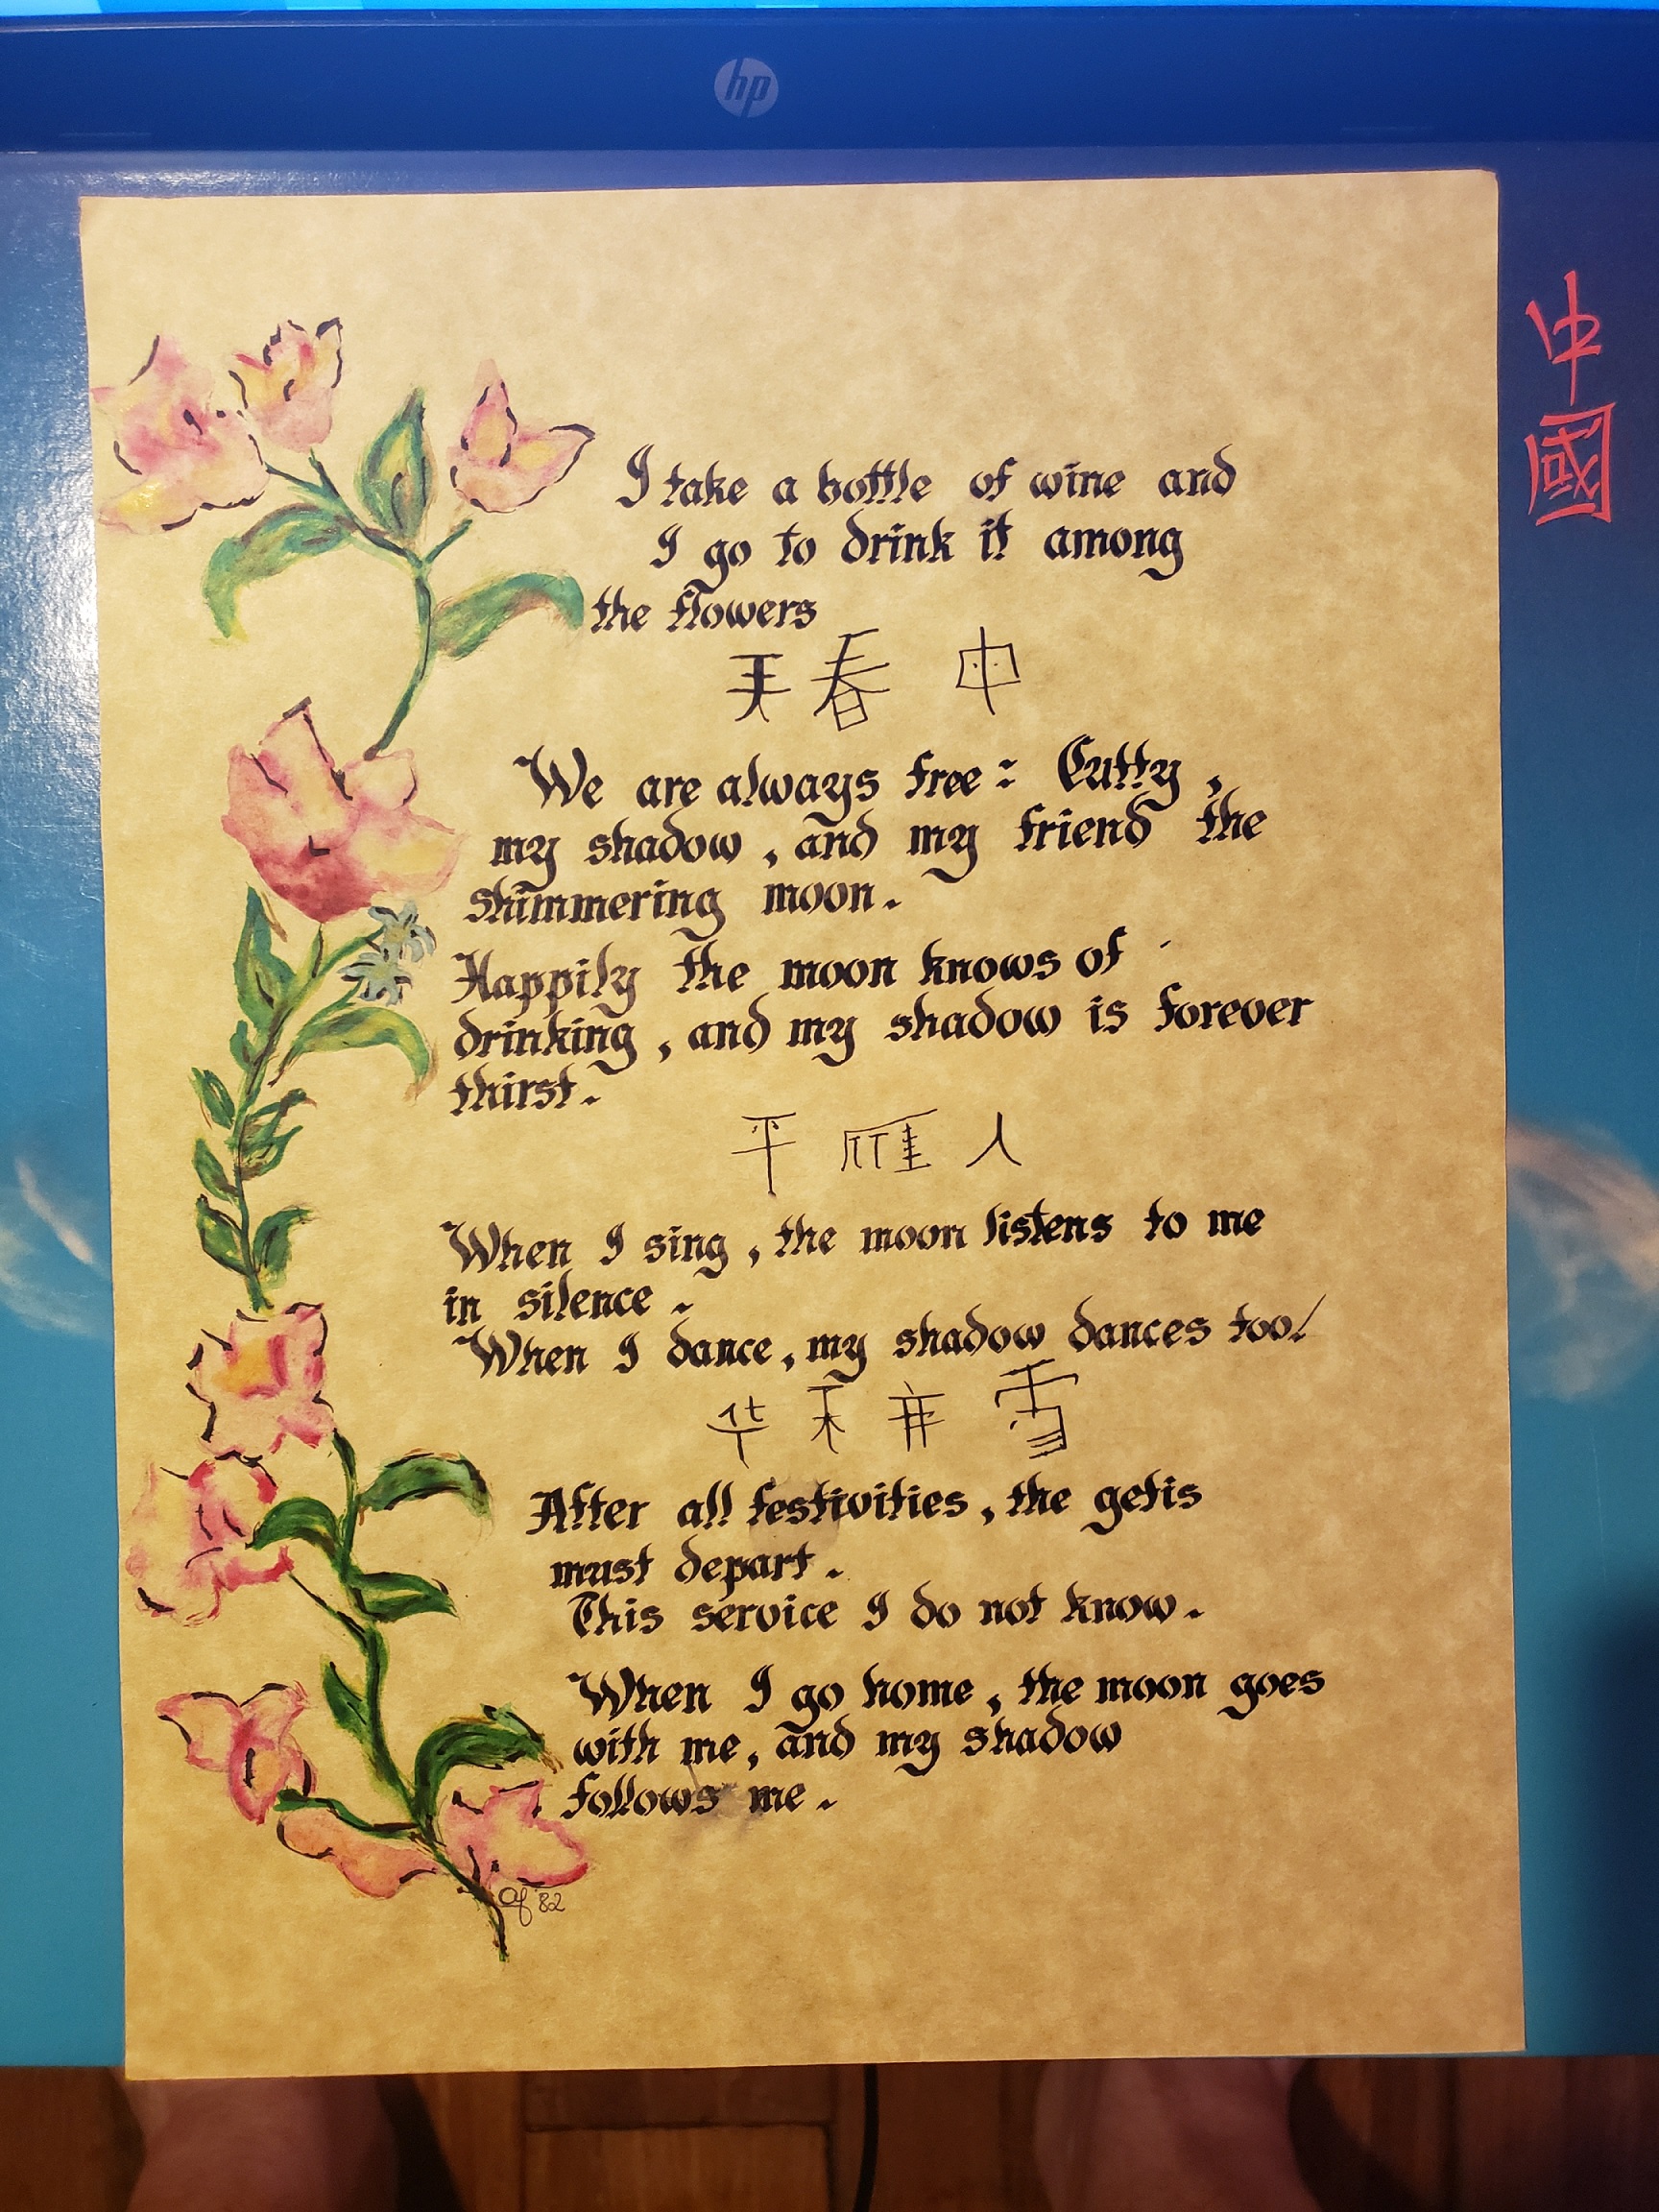 hp
中
國
I take a bottle of wine and
I go to drink it among
the flowers
春 中
We are always free : Cutty ,
my shadow , and my friend the
shimmering moon .
Happily the moon knows of
drinking , and my shadow is forever
thirst .
平 人
When I sing , the moon listens to me
in silence .
When I dance , my shadow dances too!
华 雪
After all festivities , the getis
must depart .
This service I do not know .
When I go home , the moon goes
with me , and my shadow
follows me .
'82